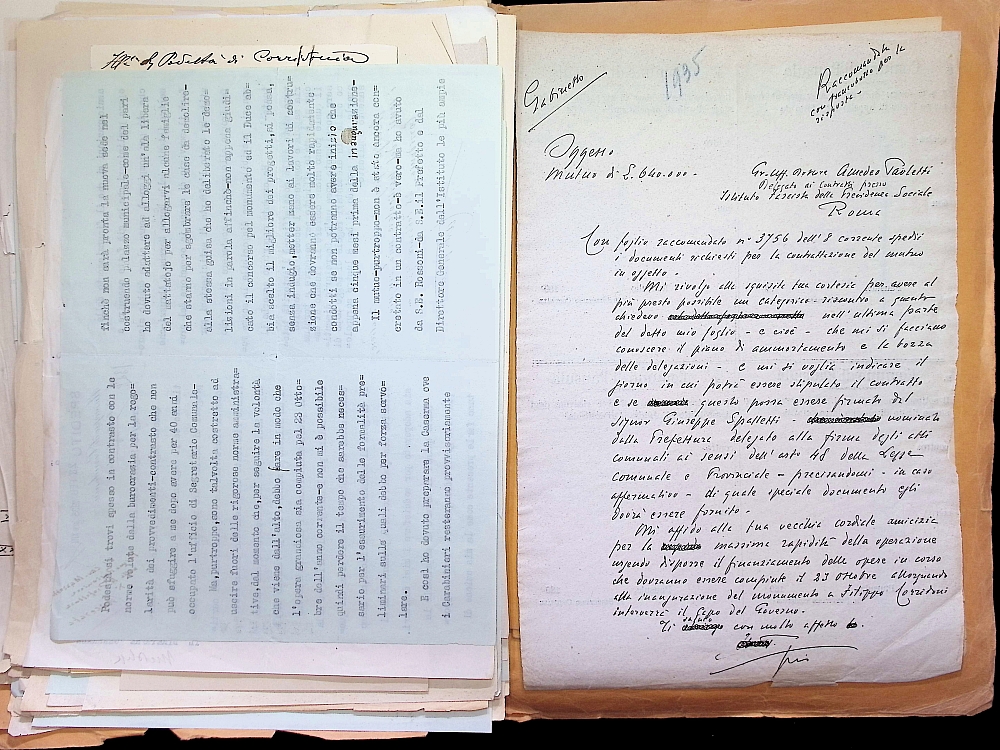 finchè non sarà pronta la nuova sede nel
costruendo palazzo municipale-come del pari
ho dovuto adattare ad alloggi un'ala libera
del mattatojo per allogarvi alcune famiglie
che stiamo per sgombrare le case da demolire-
alla stessa guisa che ho deliberato le demo=
lizioni in parola affinchè-non appena giudi=
cato il concorso pel monumento ed il Duce ab=
bia scelto il migliore dei progetti, si possa,
senza indugio, metter mano ai lavori di costru=
zione che dovranno essere molto rapidamente
condotti se non potranno avere inizio che
appena cinque mesi prima della inaugurazione-
Il mutuo-purtroppo-non è stato ancora con=
cretato in un contratto-è vero-ma ho avuto
da S.E. Rossoni-da S.E. il Prefetto e dal
Direttore Generale dell'Istituto le più ampie
Podestà si trovi spesso in contrasto con le
norme volute dalla burocrazia per la rego=
larità dei provvedimenti-contrasto che non
può sfuggire a me dopo avere per 40 anni
occupato l'ufficio di Segretario Comunale-
Ma, purtroppo, sono talvolta costretto ad
uscire fuori delle rigorose norme amministra=
tive, dal momento che, per seguire la volontà
che viene dall'alto, debbo fare in modo che
l'opera grandiosa sia compiuta pel 23 Otto=
bre dell'anno corrente-e non mi è possibile
quindi perdere il tempo che sarebbe neces=
sario per l'esaurimento delle formalità pre=
liminari sulle quali debbo per forza sorvo=
lare.
E così ho dovuto preparare la Caserma ove
i Carabinieri resteranno provvisoriamente
Gabinetto
1935
Raccomandata
con francobollo per la
risposta-
Oggetto
Mutuo di L. 640.000.-
Gr. Uff. Dottore Amedeo Paoletti
Delegato ai Contratti presso
Istituto Fascista della Previdenza Sociale
Roma
Con foglio raccomandato n° 3756 dell'8 corrente spedii
i documenti richiesti per la contrattazione del mutuo
in oggetto.
Mi rivolgo alla squisita tua cortesia per avere al
più presto possibile un categorico riscontro a quanto
chiedevo nell'ultima parte
del detto mio foglio - e cioè - che mi si facciano
conoscere il piano di ammortamento e la bozza
delle delegazioni - e mi si voglia indicare il
giorno in cui potrà essere stipulato il contratto
e se questo possa essere firmato dal
Signor Giuseppe Spalletti - nominato
dalla Prefettura delegato alla firma degli atti
comunali ai sensi dell'art° 48 della Legge
comunale e Provinciale - precisandomi - in caso
affermativo - di quale speciale documento egli
dovrà essere fornito.
Mi affido alla tua vecchia cordiale amicizia
per la massima rapidità della operazione
urgendo disporre il finanziamento delle opere in corso
che dovranno essere compiute il 23 Ottobre allorquando
alla inaugurazione del monumento a Filippo Corridoni
interverrà il Capo del Governo.
Ti saluto con molto affetto